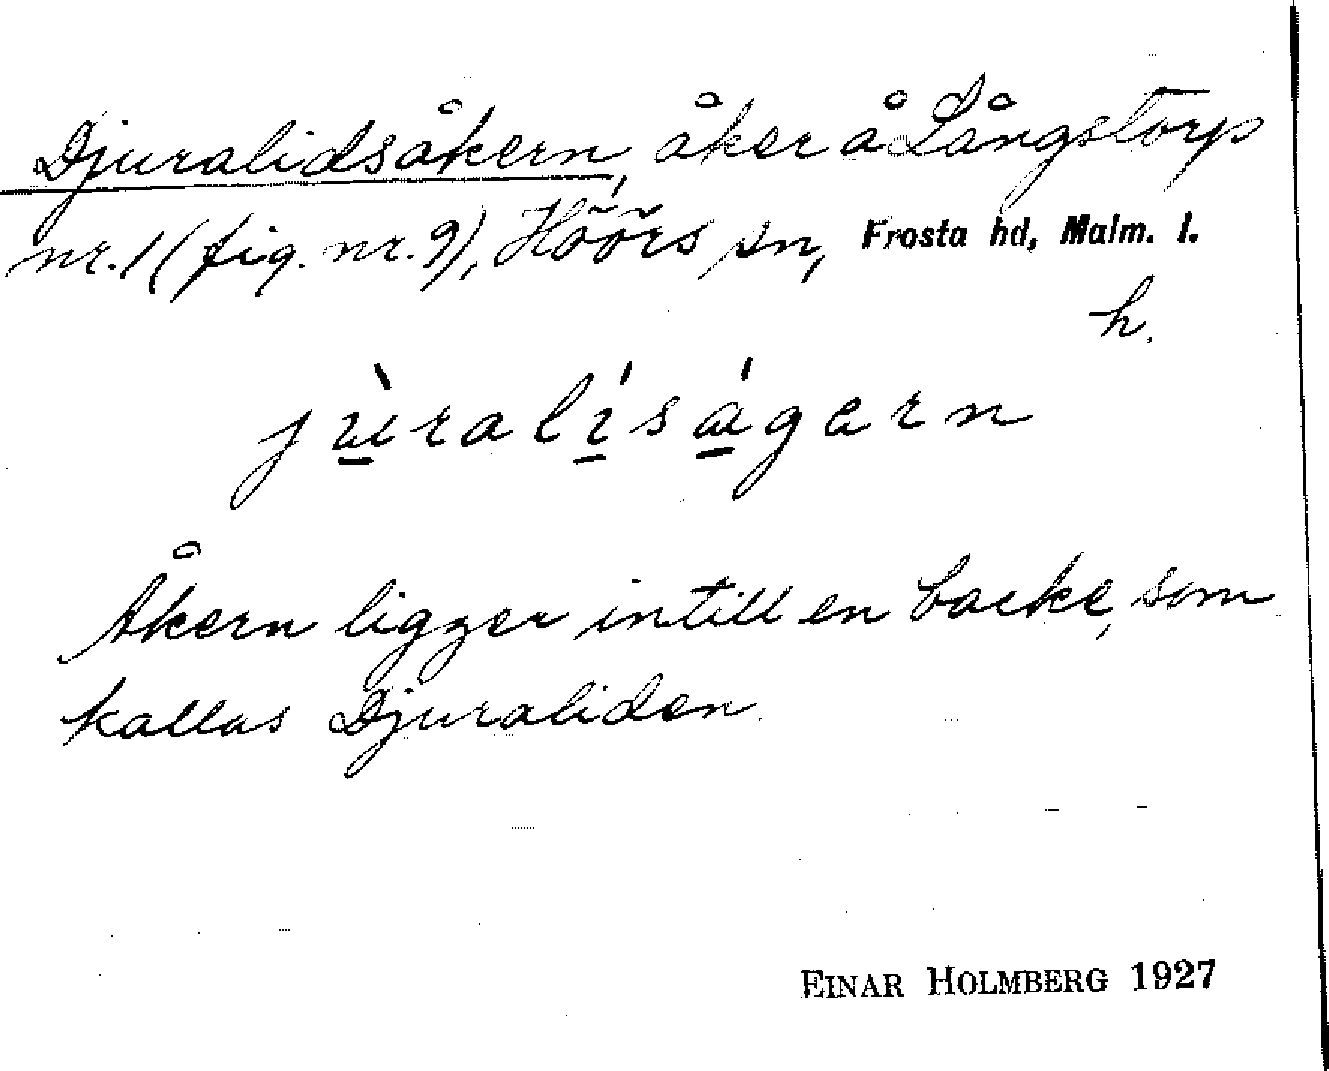 Djuralidsåkern, åker å Långstorp
nr. 1 (fig. nr. 9), Höörs sn, Frosta hd, Malm. l.
h.
jùralíságərn
Åkern ligger intill en backe, som
kallas Djuraliden.
EINAR HOLMBERG 1927